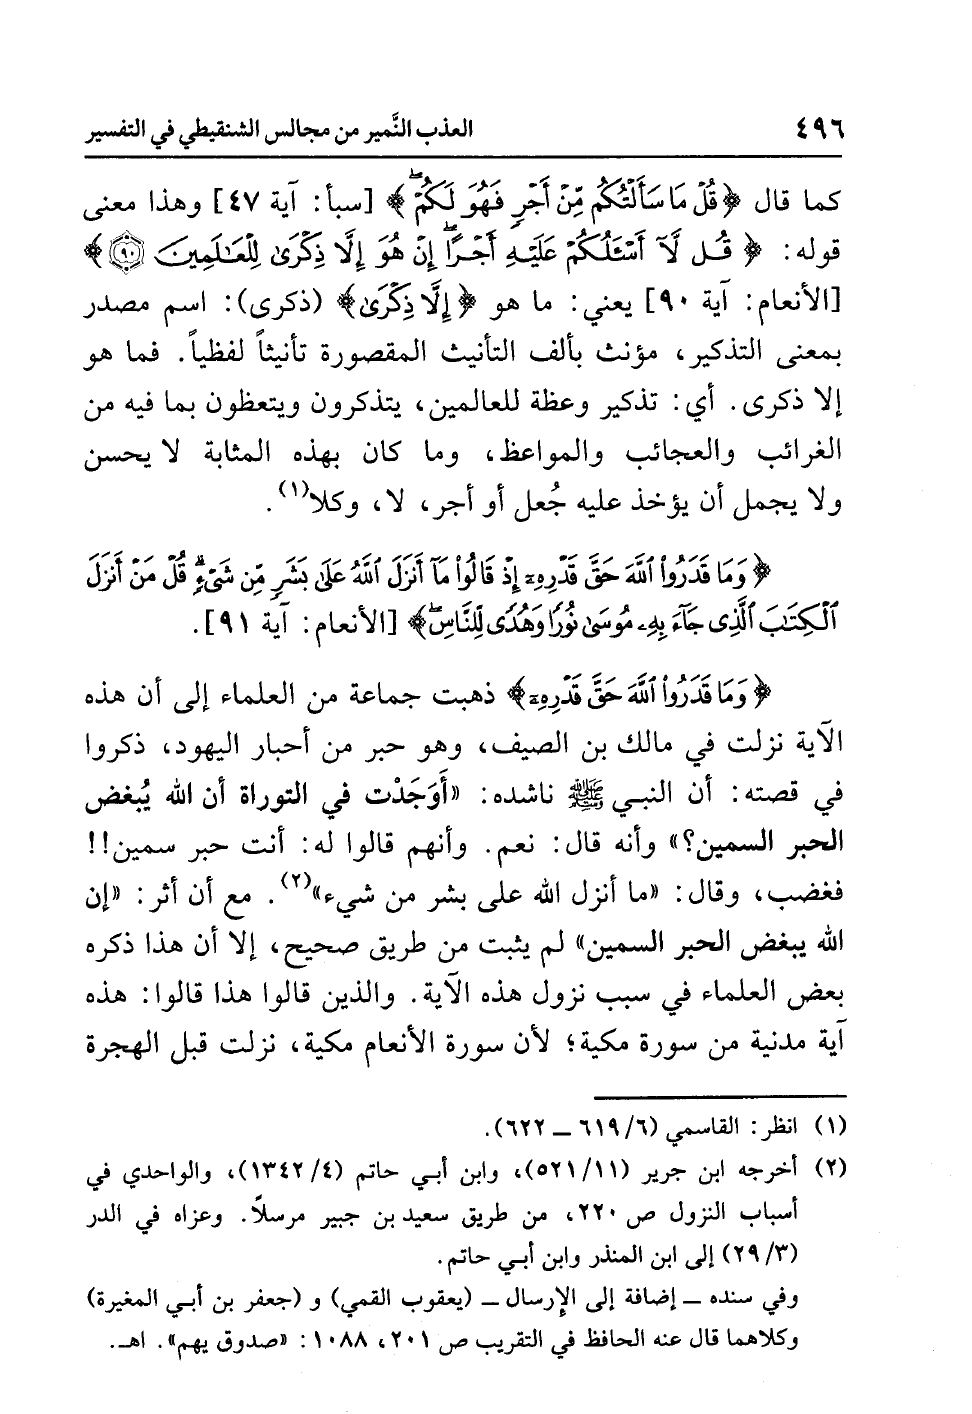 ٤٩٦ العذب النَّمير من مجالس الشنقيطي في التفسير
كما قال ﴿قُلْ مَا سَأَلْتُكُم مِّنْ أَجْرٍ فَهُوَ لَكُمْ ۖ﴾ [سبأ: آية ٤٧] وهذا معنى
قوله: ﴿قُل لَّآ أَسْـَٔلُكُمْ عَلَيْهِ أَجْرًا ۖ إِنْ هُوَ إِلَّا ذِكْرَىٰ لِلْعَـٰلَمِينَ ۝٩٠﴾
[الأنعام: آية ٩٠] يعني: ما هو ﴿إِلَّا ذِكْرَىٰ﴾ (ذكرى): اسم مصدر
بمعنى التذكير، مؤنث بألف التأنيث المقصورة تأنيثاً لفظياً. فما هو
إلا ذكرى. أي: تذكير وعظة للعالمين، يتذكرون ويتعظون بما فيه من
الغرائب والعجائب والمواعظ، وما كان بهذه المثابة لا يحسن
ولا يجمل أن يؤخذ عليه جُعل أو أجر، لا، وكلا(١).
﴿وَمَا قَدَرُوا۟ ٱللَّهَ حَقَّ قَدْرِهِۦٓ إِذْ قَالُوا۟ مَآ أَنزَلَ ٱللَّهُ عَلَىٰ بَشَرٍ مِّن شَىْءٍ ۗ قُلْ مَنْ أَنزَلَ
ٱلْكِتَـٰبَ ٱلَّذِى جَآءَ بِهِۦ مُوسَىٰ نُورًا وَهُدًى لِّلنَّاسِ ۖ﴾ [الأنعام: آية ٩١].
﴿وَمَا قَدَرُوا۟ ٱللَّهَ حَقَّ قَدْرِهِۦٓ﴾ ذهبت جماعة من العلماء إلى أن هذه
الآية نزلت في مالك بن الصيف، وهو حبر من أحبار اليهود، ذكروا
في قصته: أن النبي ﷺ ناشده: «أَوَجَدْت في التوراة أن الله يُبغض
الحبر السمين؟» وأنه قال: نعم. وأنهم قالوا له: أنت حبر سمين!!
فغضب، وقال: «ما أنزل الله على بشر من شيء»(٢). مع أن أثر: «إن
الله يبغض الحبر السمين» لم يثبت من طريق صحيح، إلا أن هذا ذكره
بعض العلماء في سبب نزول هذه الآية. والذين قالوا هذا قالوا: هذه
آية مدنية من سورة مكية؛ لأن سورة الأنعام مكية، نزلت قبل الهجرة
(١) انظر: القاسمي (٦/ ٦١٩ ــ ٦٢٢).
(٢) أخرجه ابن جرير (١١/ ٥٢١)، وابن أبي حاتم (٤/ ١٣٤٢)، والواحدي في
أسباب النزول ص ٢٢٠، من طريق سعيد بن جبير مرسلاً. وعزاه في الدر
(٣/ ٢٩) إلى ابن المنذر وابن أبي حاتم.
وفي سنده ــ إضافة إلى الإرسال ــ (يعقوب القمي) و (جعفر بن أبي المغيرة)
وكلاهما قال عنه الحافظ في التقريب ص ٢٠١، ١٠٨٨: «صدوق يهم». اهـ.